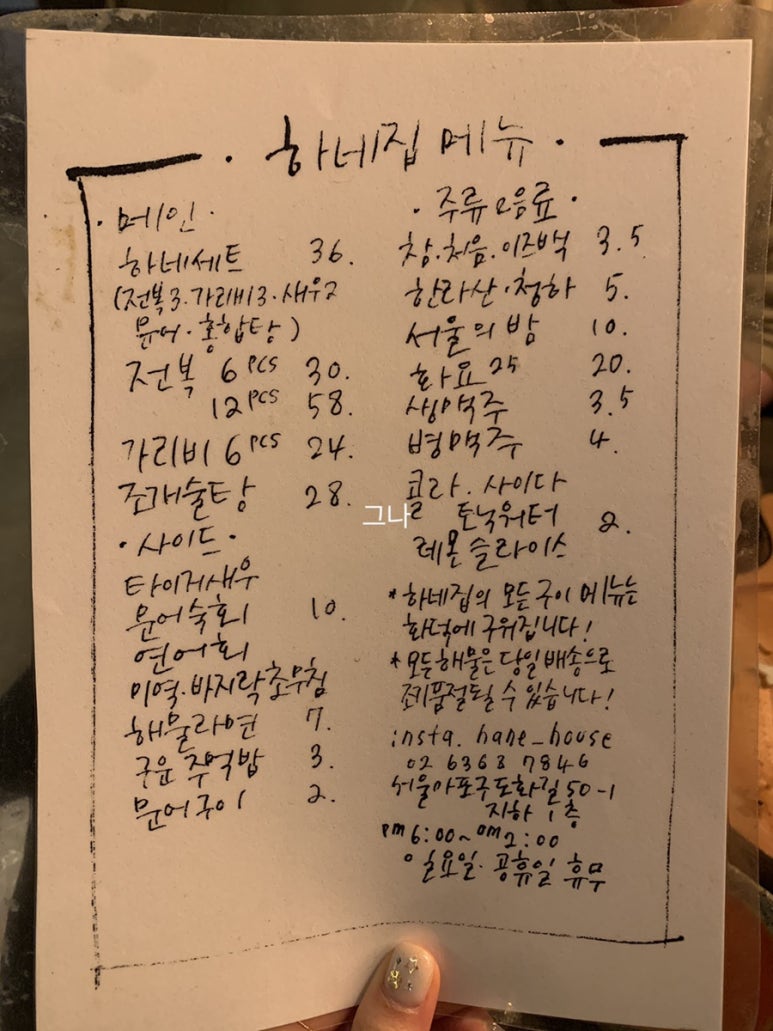 · 하네집 메뉴 ·
· 메인 ·
하네세트 36.
(전복3·가리비3·새우2
문어·홍합탕)
전복 6pcs 30.
12pcs 58.
가리비 6pcs 24.
조개술탕 28.
· 사이드 ·
타이거새우
문어숙회 10.
연어회
미역·바지락초무침
해물라면 7.
구운 주먹밥 3.
문어구이 2.
· 주류&음료 ·
참·처음·이즈백 3.5
한라산·청하 5.
서울의 밤 10.
화요25 20.
생맥주 3.5
병맥주 4.
콜라. 사이다
토닉워터 2.
레몬슬라이스
*하네집의 모든구이 메뉴는
화덕에 구워집니다!
*모든해물은 당일배송으로
조기품절될 수 있습니다!
insta. hane_house
02 6368 7846
서울마포구도화길50-1
지하 1층
pm6:00~am2:00
일요일·공휴일 휴무
그나